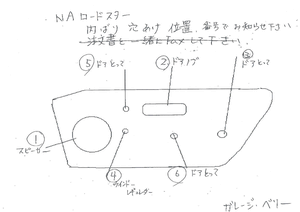 NAロードスター
内ばり 穴あけ 位置、番号でお知らせ下さい
注文書と一緒にFAXして下さい
⑤ ドアとって
② ドアノブ
③ ドアとって
① スピーカー
④ ウインドーレギュレター
⑥ ドアとって
ガレージ・ベリー